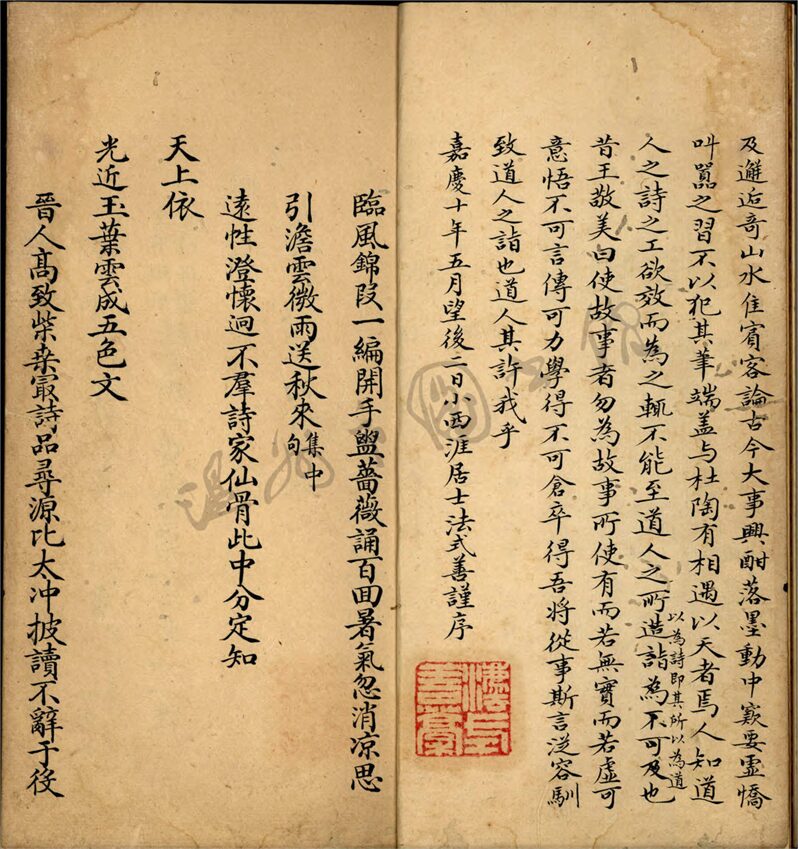 及邂逅奇山水佳賓客論古今大事興酣落墨動中窾要虛憍
叫嚣之習不以犯其筆端盖与杜陶有相遇以天者焉人知道
人之詩之工欲效而為之輒不能至道人之所造詣為不可及也
以為詩即其所以為道
昔王敬美曰使故事者勿為故事所使有而若無實而若虛可
意悟不可言傳可力學得不可倉卒得吾將從事斯言從容馴
致道人之詣也道人其許我乎
嘉慶十年五月望後二日小西涯居士法式善謹序
臨風錦段一編開手盥薔薇誦百回暑氣忽消凉思
引澹雲微雨送秋來集中句
遠性澄懷迥不羣詩家仙骨此中分定知
天上依
光近玉葉雲成五色文
晉人高致柴桑最詩品尋源比太冲披讀不辭千後